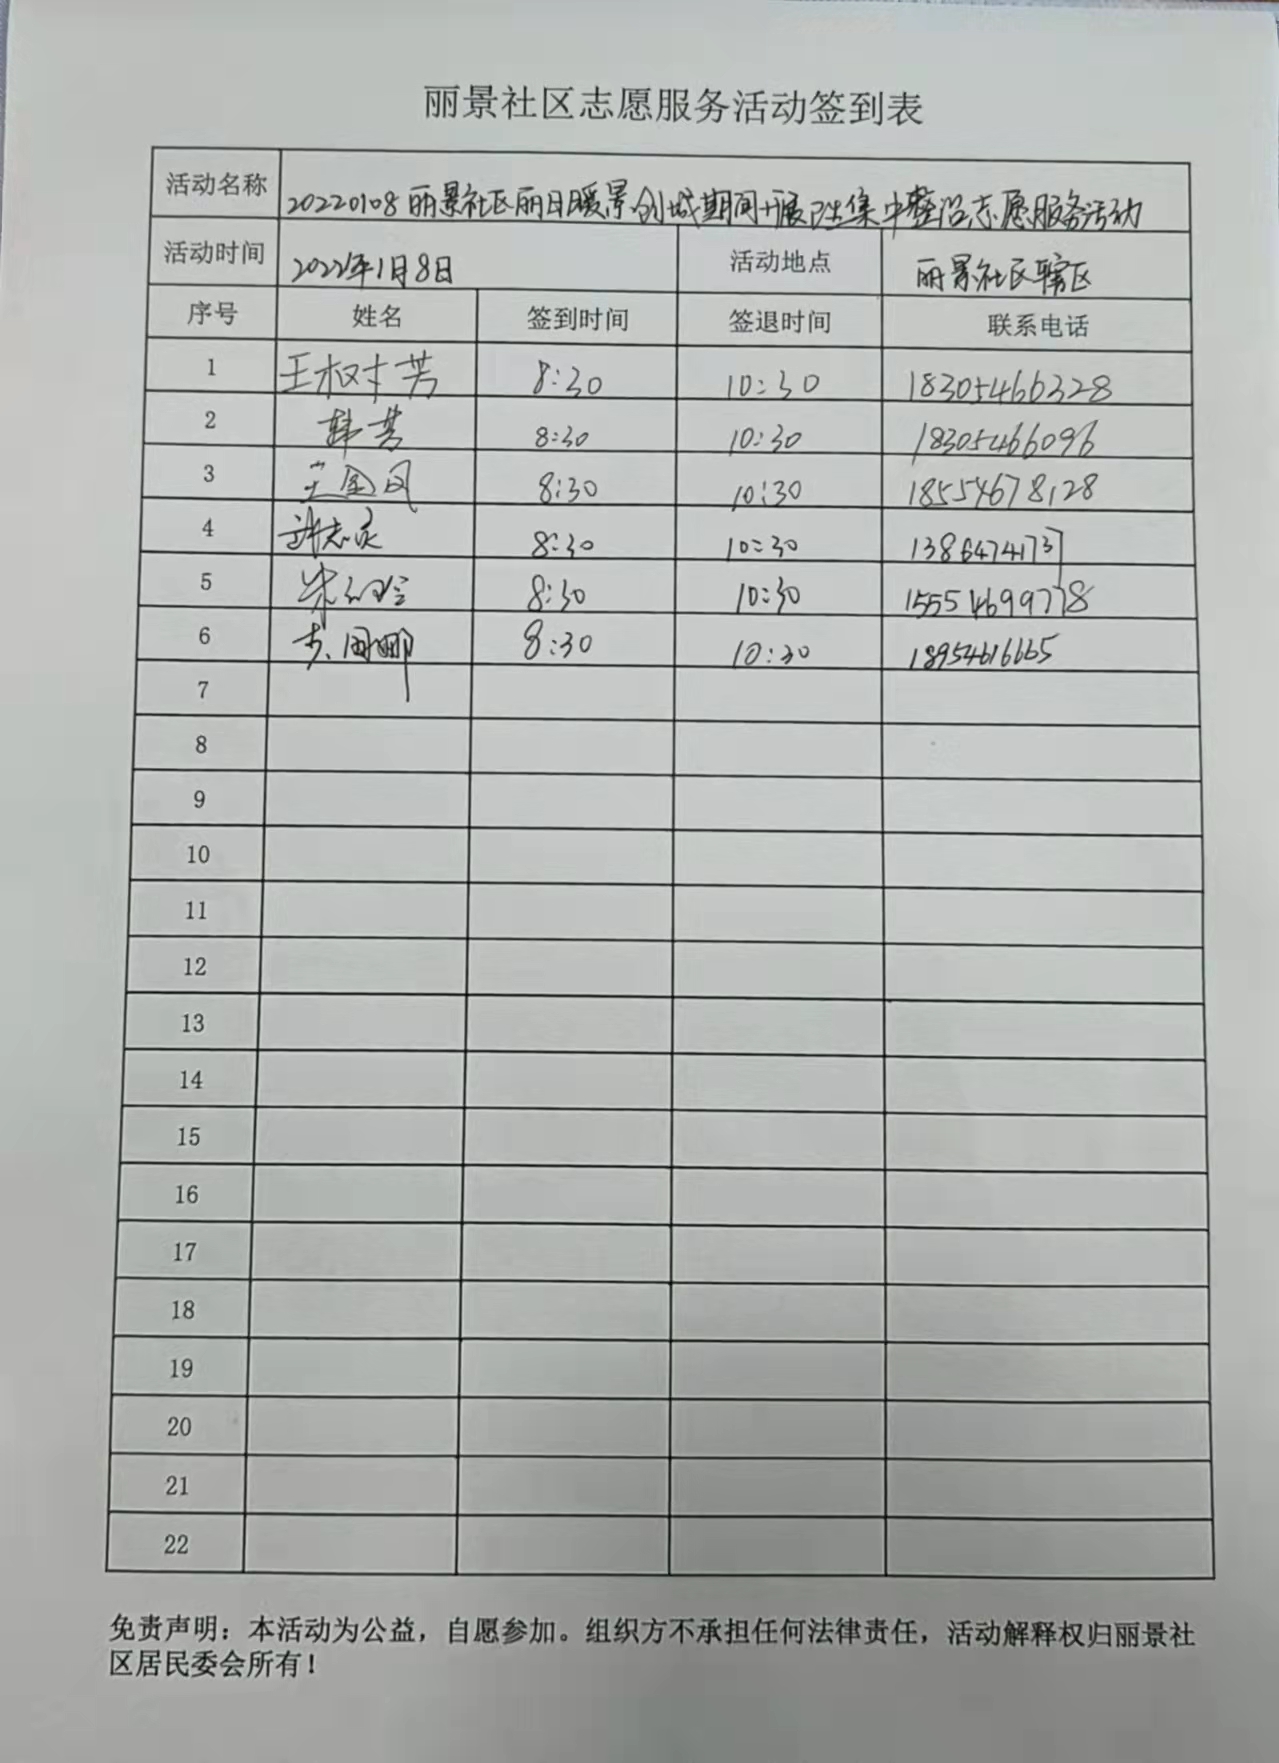 丽景社区志愿服务活动签到表
活动名称 20220108丽景社区丽日暖景创城期间开展卫生集中整治志愿服务活动
活动时间 2022年1月8日 活动地点 丽景社区辖区
序号 姓名 签到时间 签退时间 联系电话
1 王树芳 8:30 10:30 18305466328
2 韩芳 8:30 10:30 18305466096
3 8:30 10:30 18554678128
4 8:30 10:30 13864741737
5 8:30 10:30 15554699778
6 8:30 10:30 18954616665
7
8
9
10
11
12
13
14
15
16
17
18
19
20
21
22
免责声明：本活动为公益，自愿参加。组织方不承担任何法律责任，活动解释权归丽景社
区居民委会所有！